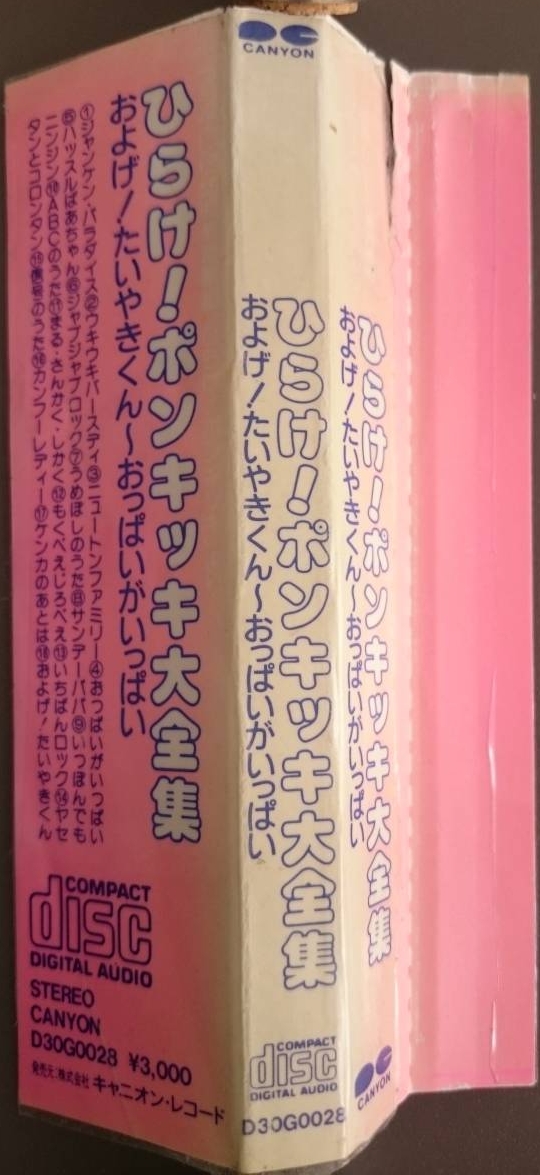 ひらけ!ポンキッキ大全集
およげ!たいやきくん〜おっぱいがいっぱい
①ジャンケン・パラダイス②ウキウキバースディ③ニュートンファミリー④おっぱいがいっぱい
⑤ハッスルばあちゃん⑥ジャブジャブロック⑦うめぼしのうた⑧サンデーパパ⑨いっぽんでも
ニンジン⑩ABCのうた⑪まる・さんかく・しかく⑫もくべえじろべえ⑬いちばんロック⑭ヤセ
タンとコロンタン⑮信号のうた⑯カンフーレディー⑰ケンカのあとは⑱およげ!たいやきくん
COMPACT
disc
DIGITAL AUDIO
STEREO
CANYON
D30G0028 ¥3,000
発売元:株式会社 キャニオン・レコード
CANYON
ひらけ!ポンキッキ大全集
およげ!たいやきくん〜おっぱいがいっぱい
COMPACT
disc
DIGITAL AUDIO
D30G0028
ひらけ!ポンキッキ大全集
およげ!たいやきくん〜おっぱいがいっぱい
CANYON